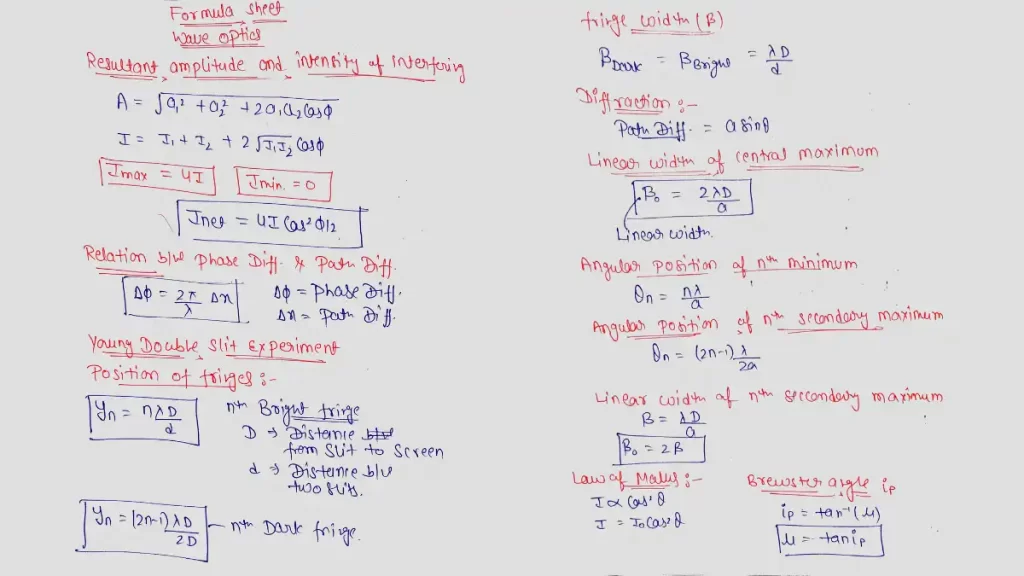 Formula sheet
Wave optics
Resultant amplitude and intensity of Interfering
A = √a₁² + a₂² + 2a₁a₂cosφ
I = I₁ + I₂ + 2√I₁I₂ cosφ
Imax = 4I
Imin. = 0
Inet = 4I cos²φ/2
Relation b/w Phase Diff. & Path Diff.
Δφ = 2π/λ Δx
Δφ = Phase Diff.
Δx = Path Diff.
Young Double Slit Experiment
Position of fringes :-
Yn = nλD/d
nth Bright fringe
D → Distance
from Slit to Screen
d → Distance b/w
two slits.
Yn = (2n-1)λD/2D
nth Dark fringe.
fringe width (β)
βDark = βBright = λD/d
Diffraction :-
Path Diff. = a sinθ
Linear width of central maximum
β₀ = 2λD/a
Linear width.
Angular position of nth minimum
θn = nλ/a
Angular position of nth secondary maximum
θn = (2n-1) λ/2a
Linear width of nth secondary maximum
β = λD/a
β₀ = 2β
Law of Malus :-
I ∝ cos²θ
I = I₀cos²θ
Brewster angle ip
ip = tan⁻¹(μ)
μ = tan ip